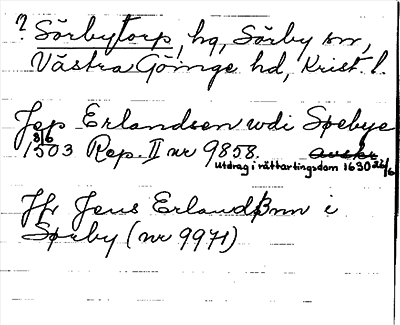 ? Sörbytorp, hg, Sörby sn,
Västra Göinge hd, Krist. l.
Jep Erlandsen wdi Søebye
8/6
1503 Rep. II nr 9858. Avskr
utdrag i rättartingsdom 1630 22/6
Jfr Jens Erlandßnn i
Sørby (nr 9971)